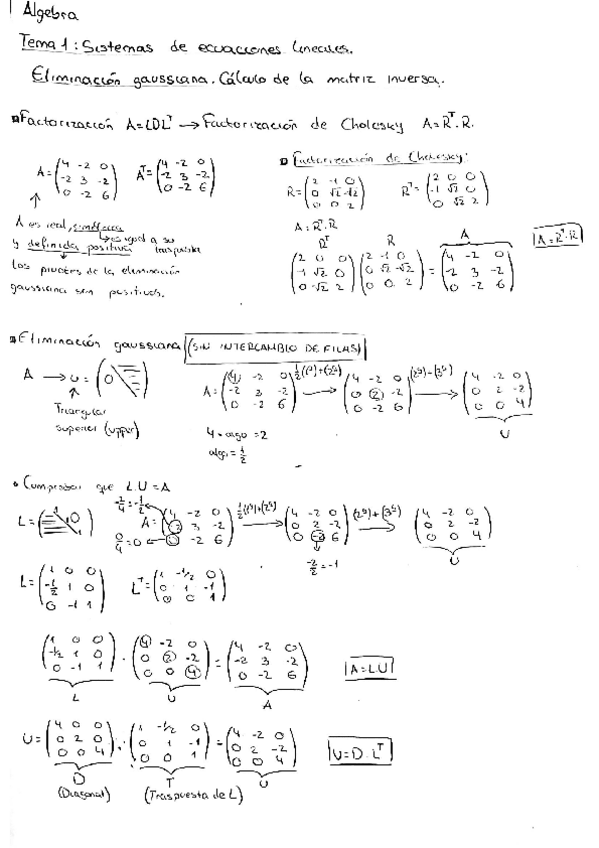 Algebra
Tema 1: Sistemas de ecuaciones lineales.
Eliminación gaussiana. Cálculo de la matriz inversa.
Factorización A=LDLᵀ → Factorización de Cholesky A=Rᵀ.R.
A=(4 -2 0; -2 3 -2; 0 -2 6) Aᵀ=(4 -2 0; -2 3 -2; 0 -2 6)
A es real, simétrica
→ es igual a su traspuesta
y definida positiva
Los pivotes de la eliminación
gaussiana son positivos.
Factorización de Cholesky:
R=(2 -1 0; 0 √2 -√2; 0 0 2) Rᵀ=(2 0 0; -1 √2 0; 0 √2 2)
A=Rᵀ.R
Rᵀ R A
(2 0 0; -1 √2 0; 0 -√2 2)(2 -1 0; 0 √2 -√2; 0 0 2)=(4 -2 0; -2 3 -2; 0 -2 6)
A=Rᵀ.R
Eliminación gaussiana (SIN INTERCAMBIO DE FILAS)
A → U=(0)
Triangular
superior (upper)
A=(4 -2 0; -2 3 -2; 0 -2 6) → (4 -2 0; 0 2 -2; 0 -2 6) → (4 -2 0; 0 2 -2; 0 0 4)
U
4 · algo = 2
algo = 1/2
Comprobar que L.U=A
L=(0)
-2/4=-1/2
0/4=0
A=(4 -2 0; -2 3 -2; 0 -2 6) → (4 -2 0; 0 2 -2; 0 -2 6) → (4 -2 0; 0 2 -2; 0 0 4)
-2/2=-1
U
L=(1 0 0; -1/2 1 0; 0 -1 1) Lᵀ=(1 -1/2 0; 0 1 -1; 0 0 1)
(1 0 0; -1/2 1 0; 0 -1 1) · (4 -2 0; 0 2 -2; 0 0 4) = (4 -2 0; -2 3 -2; 0 -2 6)
L U A
A=LU
U=(4 0 0; 0 2 0; 0 0 4) · (1 -1/2 0; 0 1 -1; 0 0 1) = (4 -2 0; 0 2 -2; 0 0 4)
D T U
(Diagonal) (Traspuesta de L)
U=D.Lᵀ